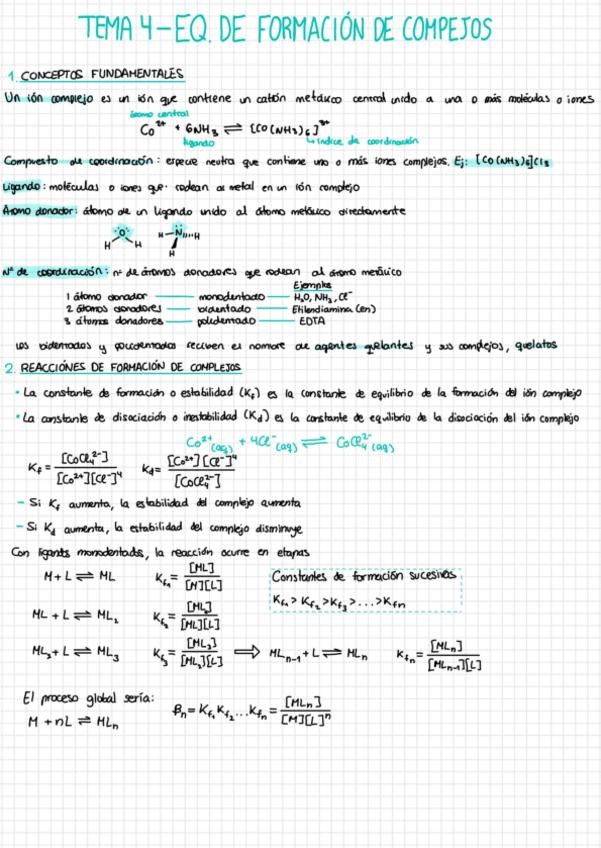 TEMA 4-EQ. DE FORMACIÓN DE COMPEJOS
1. CONCEPTOS FUNDAMENTALES
Un ión complejo es un ión que contiene un catión metálico central unido a una o más moléculas o iones
átomo central
Co³⁺ + 6NH₃ ⇌ [Co(NH₃)₆]³⁺
ligando
índice de coordinación
Compuesto de coordinación: especie neutra que contiene uno o más iones complejos. Ej: [Co(NH₃)₆]Cl₃
Ligando: moléculas o iones que rodean al metal en un ión complejo
Átomo donador: átomo de un ligando unido al átomo metálico directamente
O H H
H-N-H H
Nº de coordinación: nº de átomos donadores que rodean al átomo metálico
Ejemplos
1 átomo donador — monodentado — H₂O, NH₃, Cl⁻
2 átomos donadores — bidentado — Etilendiamina (en)
3 átomos donadores — polidentado — EDTA
Los bidentados y polidentados reciben el nombre de agentes quelantes y sus complejos, quelatos
2. REACCIÓNES DE FORMACIÓN DE COMPLEJOS
• La constante de formación o estabilidad (Kf) es la constante de equilibrio de la formación del ión complejo
• La constante de disociación o inestabilidad (Kd) es la constante de equilibrio de la disociación del ión complejo
Co²⁺(aq) + 4Cl⁻(aq) ⇌ CoCl₄²⁻(aq)
Kf = [CoCl₄²⁻] / [Co²⁺][Cl⁻]⁴ Kd = [Co²⁺][Cl⁻]⁴ / [CoCl₄²⁻]
- Si Kf aumenta, la estabilidad del complejo aumenta
- Si Kd aumenta, la estabilidad del complejo disminuye
Con ligands monodentads, la reacción ocurre en etapas
M + L ⇌ ML Kf₁ = [ML] / [M][L]
Constantes de formación sucesivas
Kf₁ > Kf₂ > Kf₃ > ... > Kfn
ML + L ⇌ ML₂ Kf₂ = [ML₂] / [ML][L]
ML₂ + L ⇌ ML₃ Kf₃ = [ML₃] / [ML₂][L] ⇒ MLn-1 + L ⇌ MLn Kfn = [MLn] / [MLn-1][L]
El proceso global sería:
M + nL ⇌ MLn βn = Kf₁ Kf₂ ... Kfn = [MLn] / [M][L]ⁿ